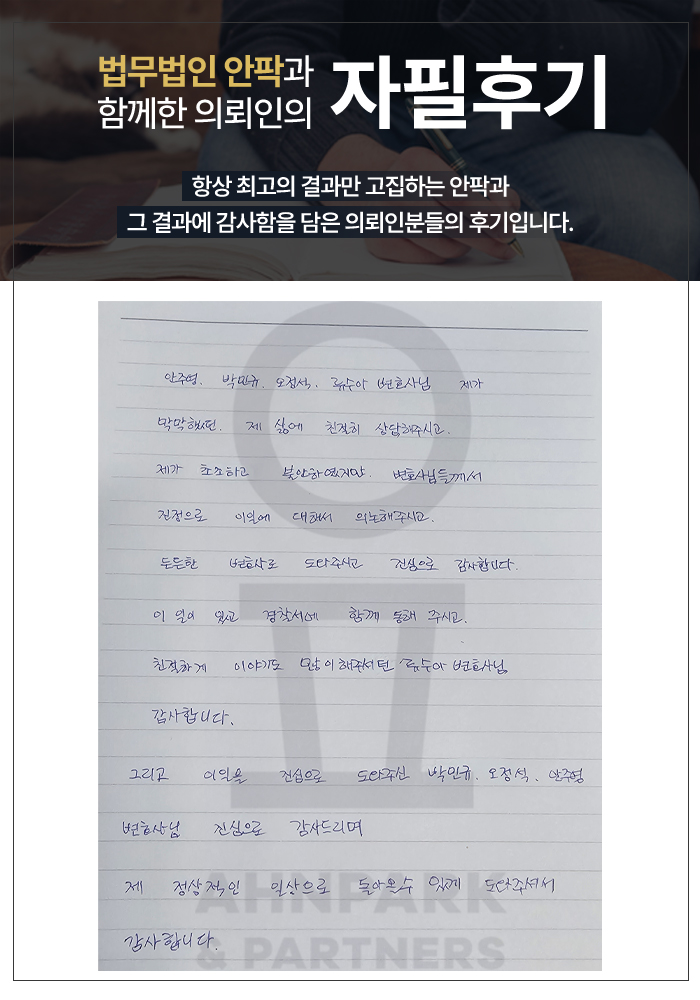 법무법인 안팍과
함께한 의뢰인의
자필후기
항상 최고의 결과만 고집하는 안팍과
그 결과에 감사함을 담은 의뢰인분들의 후기입니다.
안주영. 박민규. 오정석. 류수아 변호사님 제가
막막했던. 제 삶에 친절히 상담해주시고.
제가 초조하고 불안하였지만. 변호사님들께서
진정으로 이일에 대해서 의논해주시고.
든든한 변호사로 도와주시고 진심으로 감사합니다.
이 일이 있고 경찰서에 함께 동행 주시고.
친절하게 이야기도 많이해주셔던 류수아 변호사님
감사합니다.
그리고 이일을 진심으로 도와주신 박민규. 오정석. 안주영
변호사님 진심으로 감사드리며
제 정상적인 일상으로 돌아올수 있게 도와주셔서
감사합니다.
AHNPARK
& PARTNERS